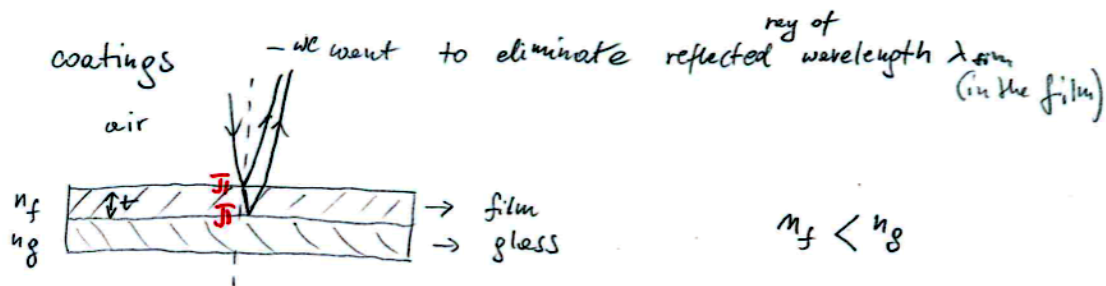 ray of
coatings - we want to eliminate reflected wavelength λ film
(in the film)
air
π
n_f t π → film
n_g → glass
n_f < n_g